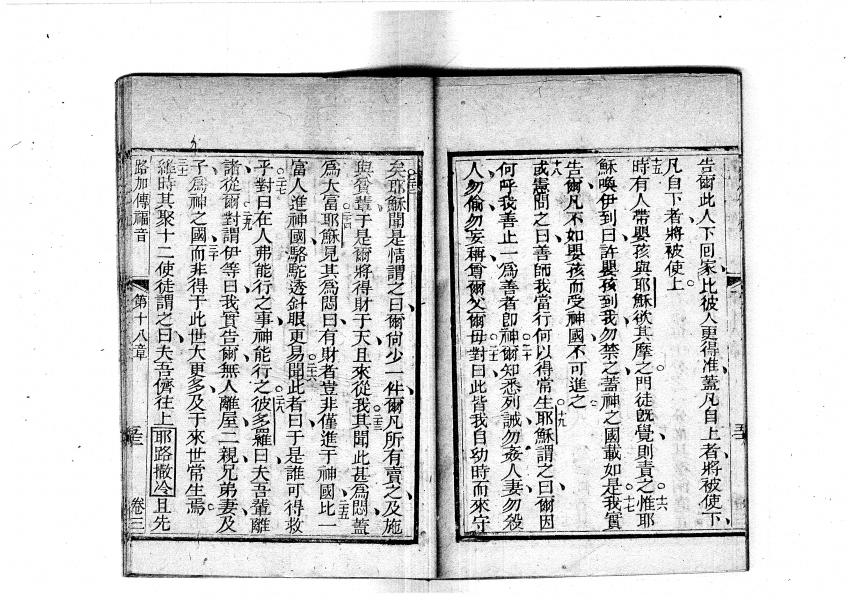 告爾此人下回家比彼人更得准蓋凡自上者將被使下
凡自下者將被使上
十五時有人帶嬰孩與耶穌欲其摩之門徒既覺則責之十六惟耶
穌喚伊到曰許嬰孩到我勿禁之蓋神之國載如是十七我實
告爾凡不如嬰孩而受神國不可進之
十八或憲問之曰善師我當行何以得常生十九耶穌謂之曰爾因
何呼我善止一為善者即神二十爾知悉列誡勿姦人妻勿殺
人勿偷勿妄稱尊爾父爾母二一對曰此皆我自幼時而來守
矣二二耶穌聞是情謂之曰爾尚少一件爾凡所有賣之及施
與貧輩于是爾將得財于天且來從我二三其聞此甚為悶蓋
為大富二四耶穌見其為悶曰有財者豈非僅進于神國二五比一
富人進神國駱駝透針眼更易二六聞此者曰于是誰可得救
乎二七對曰在人弗能行之事神能行之二八彼多羅曰夫吾輩離
諸從爾二九對謂伊等曰我實告爾無人離屋二親兄弟妻及
子為神之國三十而非得于此世大更多及于來世常生焉
三一維時其聚十二使徒謂之曰夫吾儕往上耶路撒冷且先
路加傳福音 第十八章 卷三